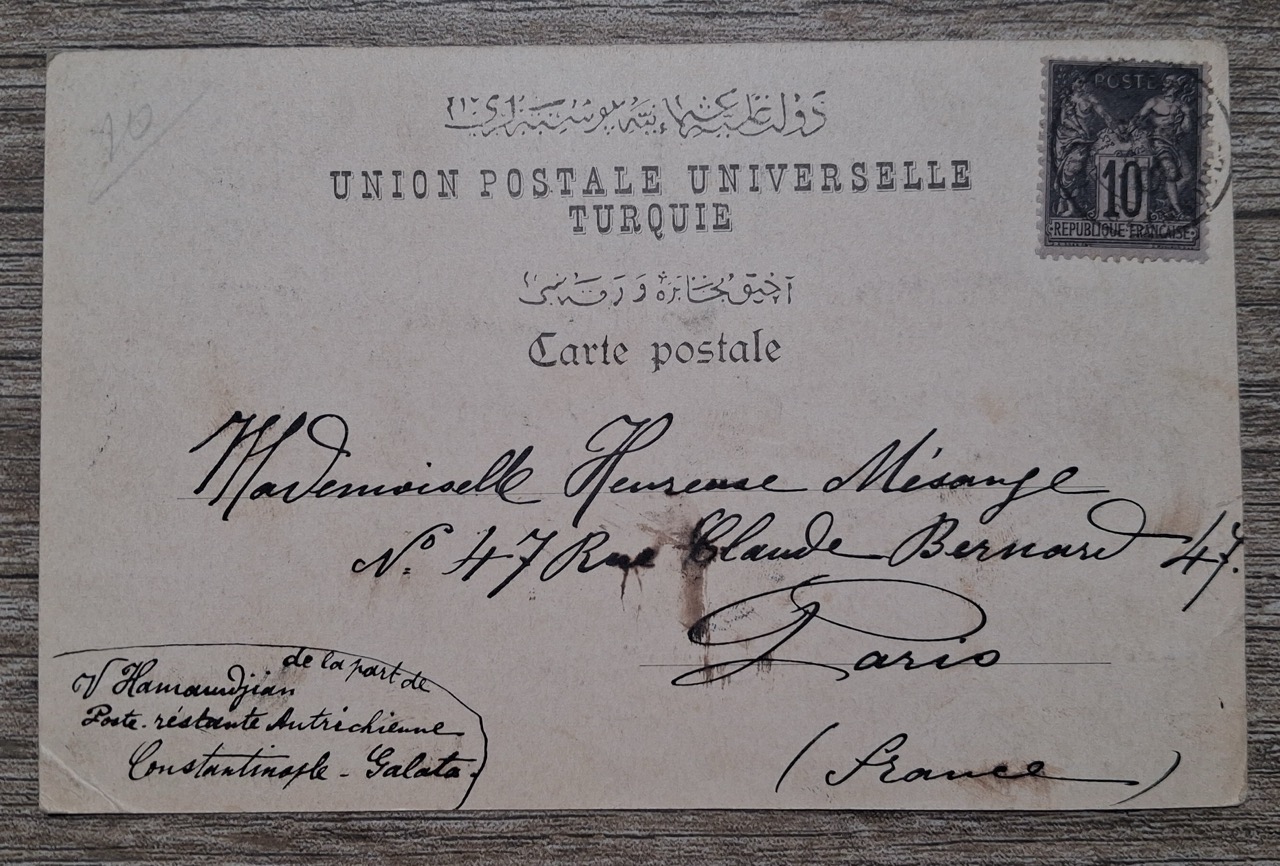 70
POSTE
10
REPUBLIQUE FRANCAISE
دولت علیه عثمانیه پوسته لری
UNION POSTALE UNIVERSELLE
TURQUIE
آچیق مخابره ورقه سی
Carte postale
Mademoiselle Heureuse Mésange
No. 47 Rue Claude Bernard 47.
Paris
(France)
de la part de
V Hamamdjian
Poste-réstante Autrichienne
Constantinople - Galata.